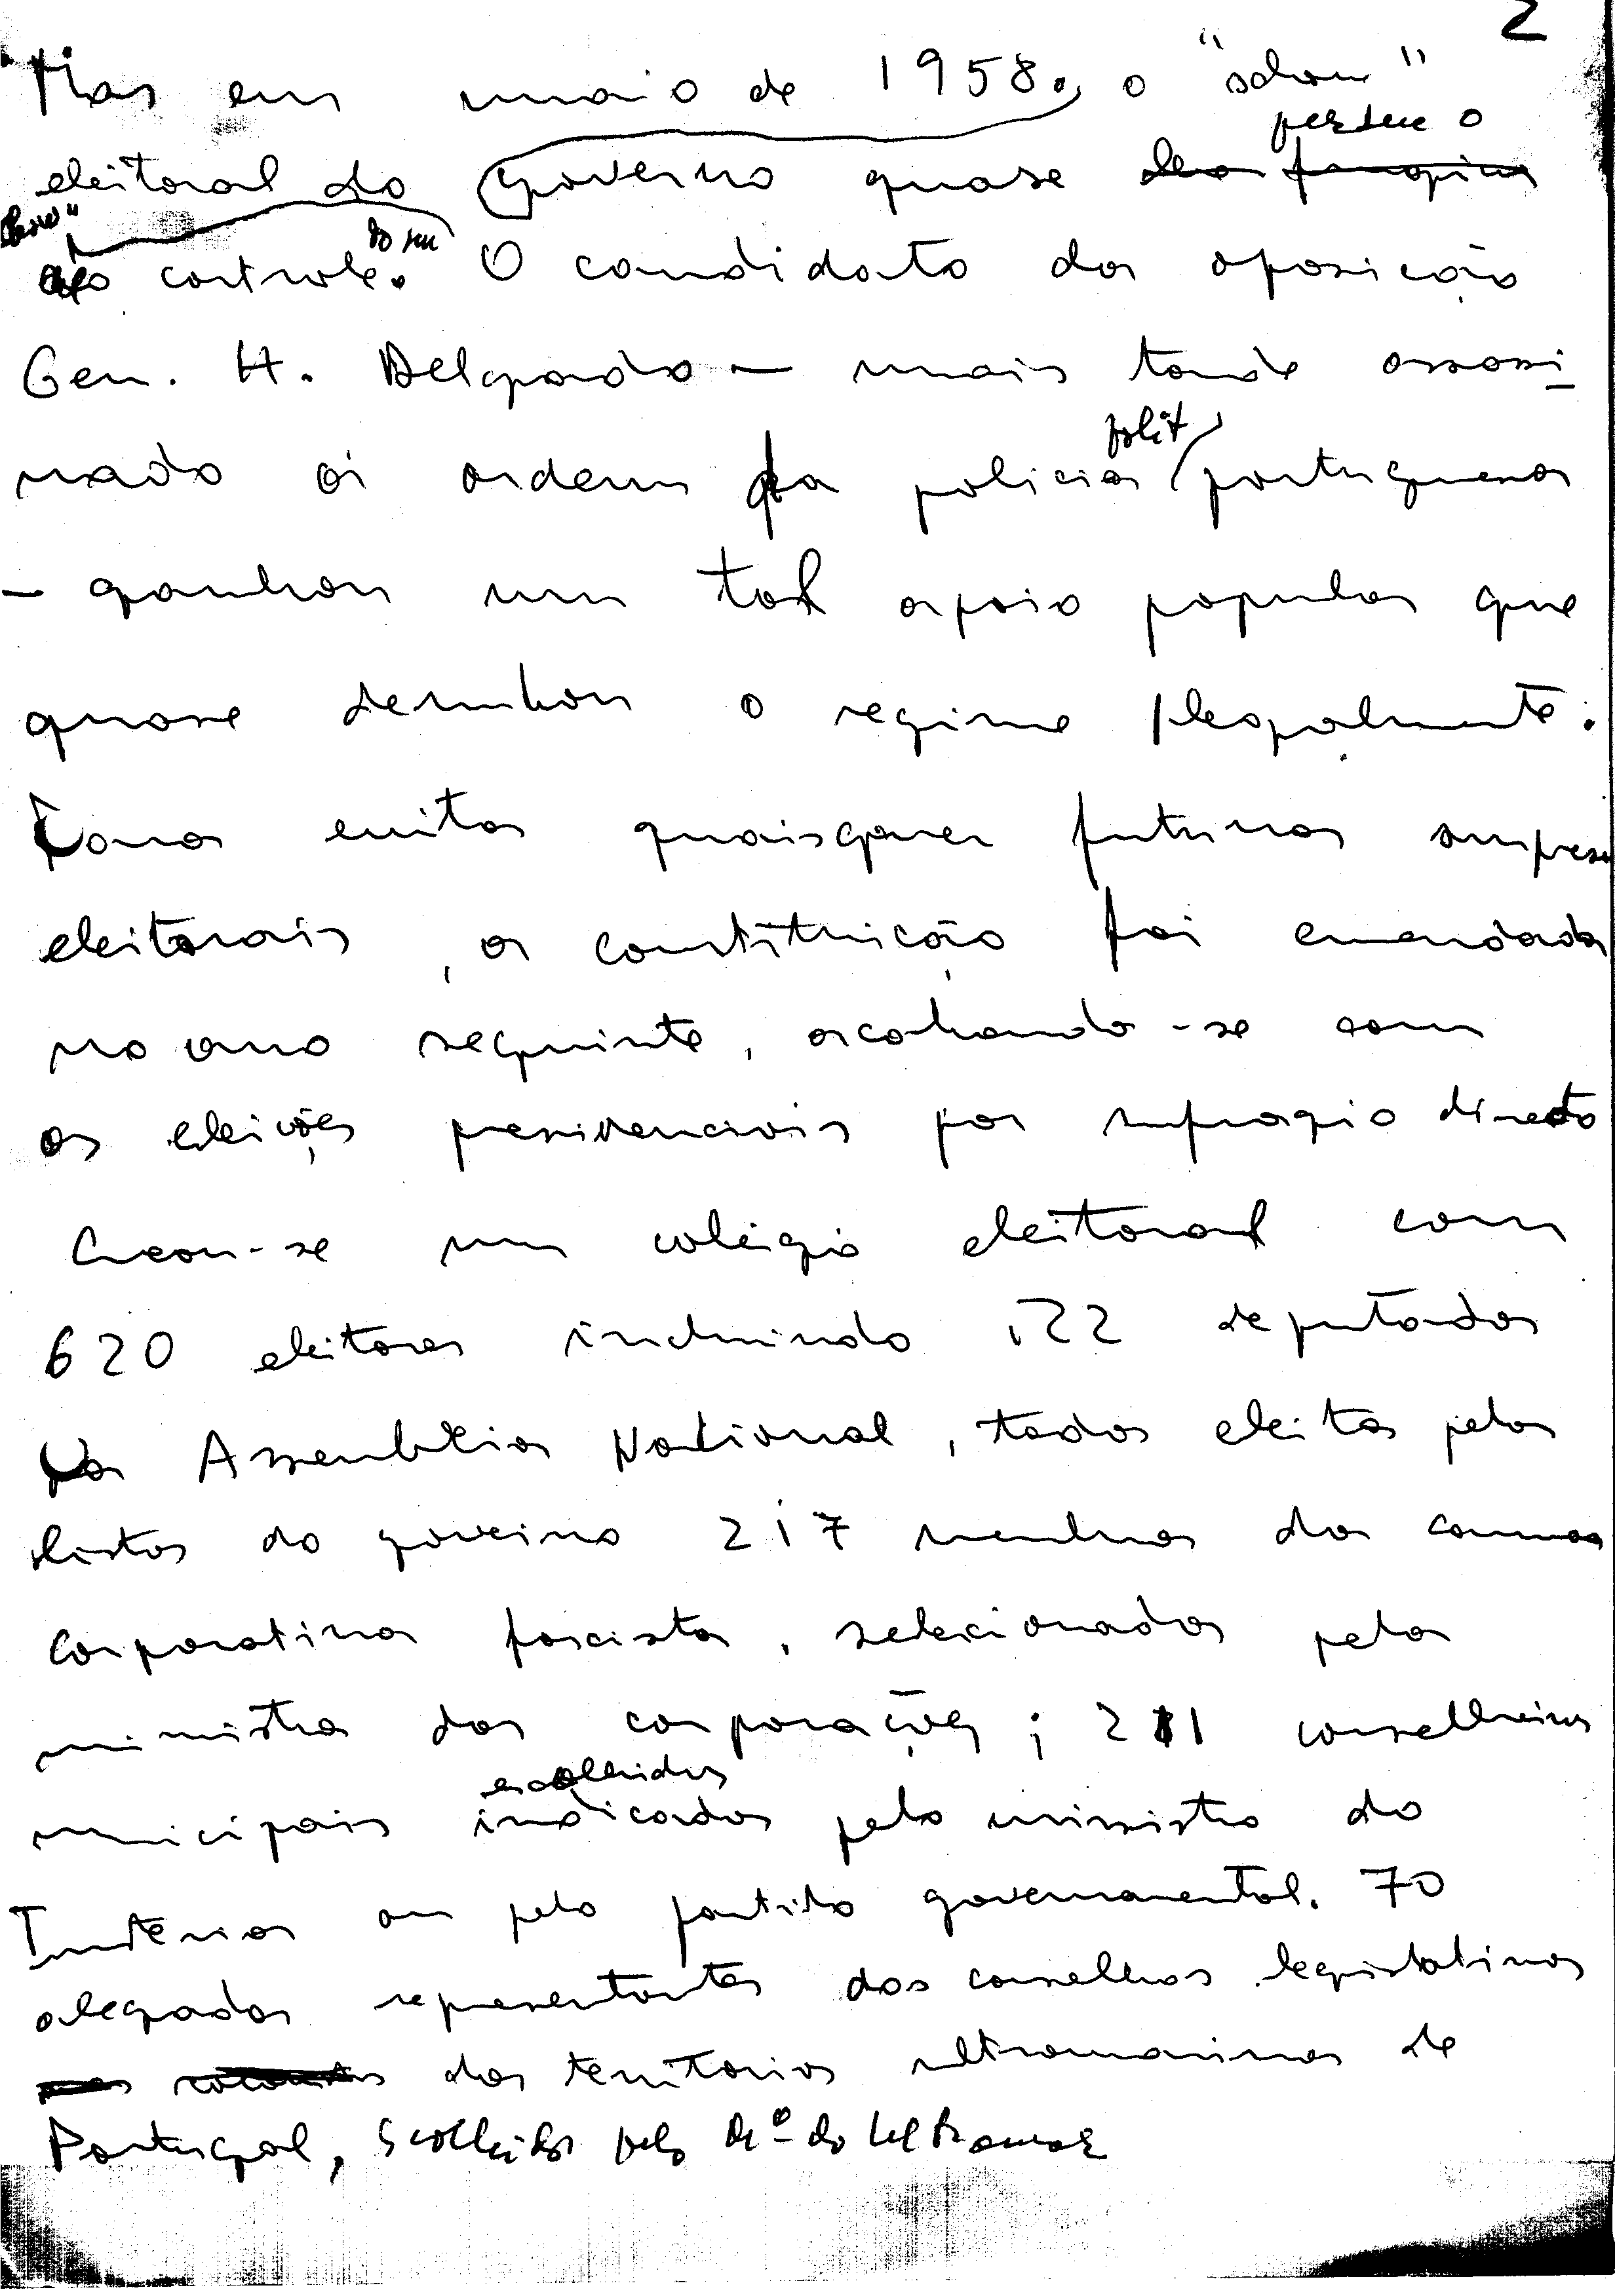 2
Mas em maio de 1958, o "
perdeu o
eleitoral do governo quase
do seu
controle. O candidato da oposição
Gen. H. Delgado — mais tarde assassi-
nado à ordem da policia polit portuguesa
— ganhou um tal apoio popular que
quase derrubou o regime legalmente.
Para evitar quaisquer futuras surpresas
eleitorais, a constituição foi emendada
no ano seguinte, acabando-se com
as eleições presidenciais por sufragio directo
Creou-se um colégio eleitoral com
620 eleitores incluindo 122 deputados
da Assembleia Nacional, todos eleitos pelas
listas do governo 217 membros da camara
corporativa fascista, selecionados pelo
ministro das corporações; 211 conselheiros
escolhidos
municípais indicados pelo ministro do
Interior ou pelo partido governamental. 70
alegados representantes dos conselhos legislativos
dos territorios ultramarinos de
Portugal, scolhidos pelo Mº do Ultramar